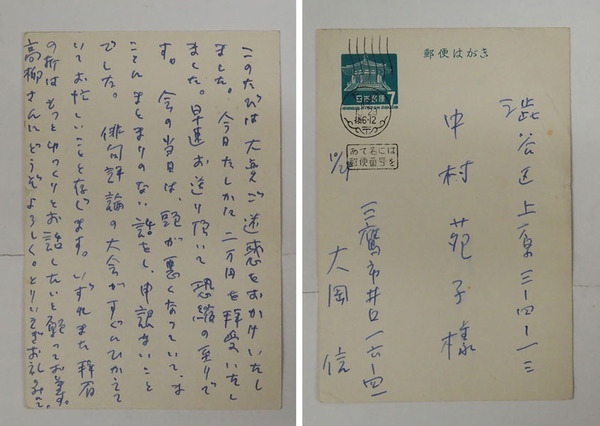 このたびは大変ご迷惑をおかけいたし
ました。今日たしかに二万円を拝受いたし
ました。早速お送り頂いて恐縮の至りで
す。会の当日は、頭が悪くなっていて、ま
ことにまとまりのない話をし、申訳ないこと
でした。俳句評論の大会がすぐにひかえて
いてお忙しいことと存じます。いずれまた拝眉
の折はもっとゆっくりとお話したいと願っております。
高柳さんにどうぞよろしく。とりいそぎお礼のみで。
郵便はがき
日本郵便 7
NIPPON
6-12
あて名には
郵便番号を
渋谷区上原三-四-一三
中村苑子様
三鷹市井口一六-四
大岡信